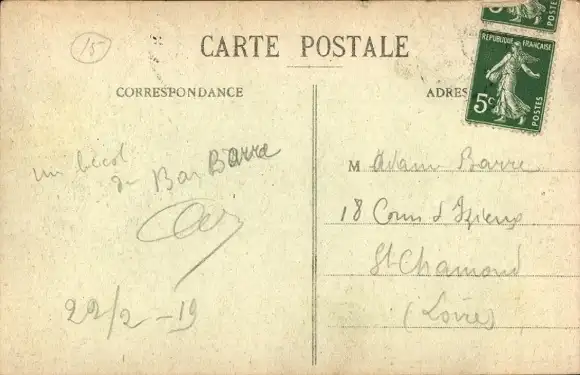 15
CARTE POSTALE
CORRESPONDANCE
ADRES
REPUBLIQUE FRANÇAISE
5c
POSTES
POSTES
un bécot
de Bar Barre
22/2 - 19
M Adam Barre
18 Cours d'Izieux
St-Chamond
(Loire)